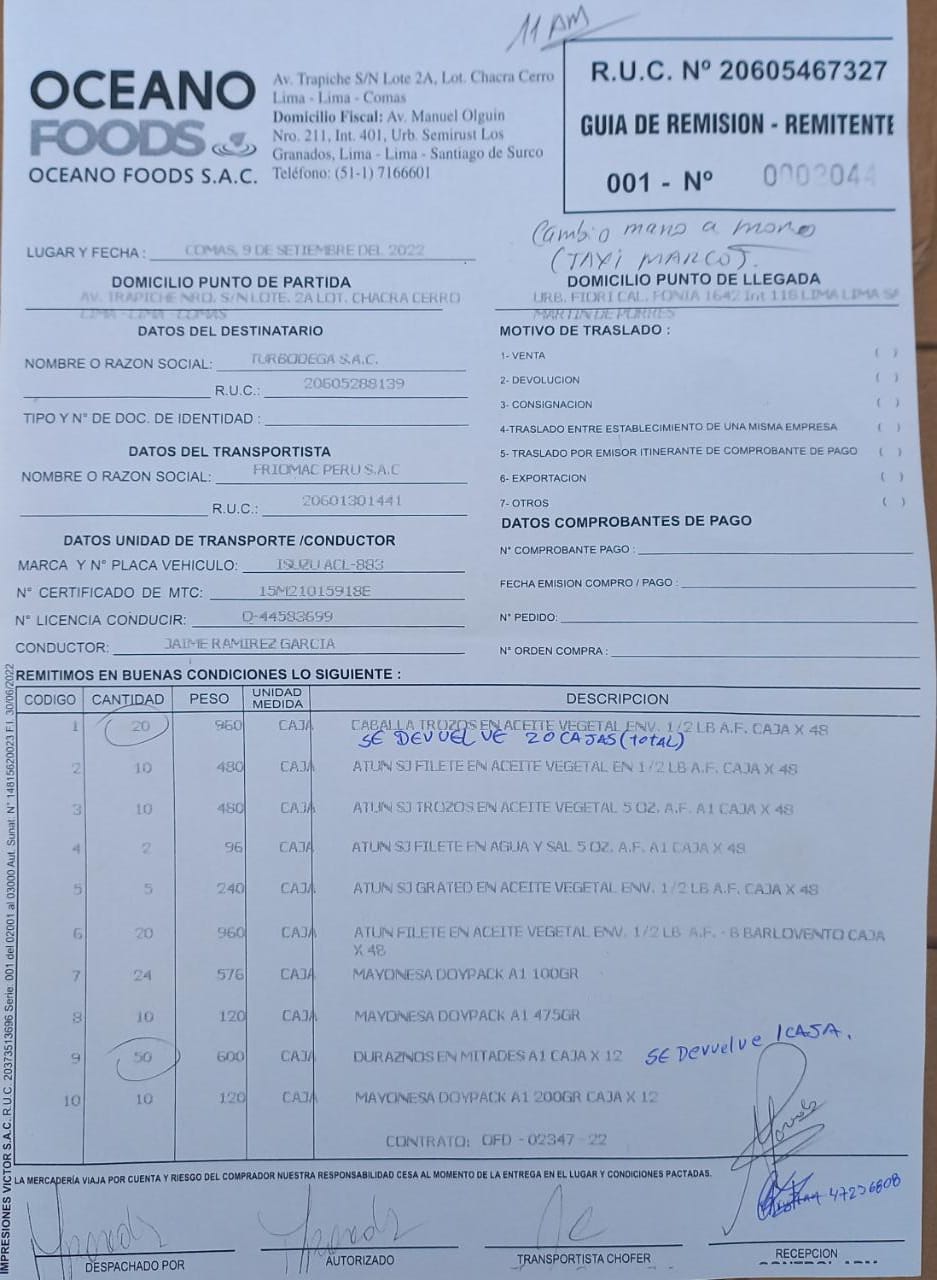 11 AM
OCEANO
FOODS
OCEANO FOODS S.A.C.
Av. Trapiche S/N Lote 2A, Lot. Chacra Cerro
Lima - Lima - Comas
Domicilio Fiscal: Av. Manuel Olguin
Nro. 211, Int. 401, Urb. Semirust Los
Granados, Lima - Lima - Santiago de Surco
Teléfono: (51-1) 7166601
R.U.C. Nº 20605467327
GUIA DE REMISION - REMITENTE
001 - Nº 0002044
Cambio mano a mano
(TAXI MARCO).
LUGAR Y FECHA : COMAS, 9 DE SETIEMBRE DEL 2022
DOMICILIO PUNTO DE PARTIDA
AV. TRAPICHE NRO. S/N LOTE. 2A LOT. CHACRA CERRO
LIMA - LIMA - COMAS
DOMICILIO PUNTO DE LLEGADA
URB. FIORI CAL. FONIA 1642 Int 116 LIMA LIMA SA
MARTIN DE PORRES
DATOS DEL DESTINATARIO
NOMBRE O RAZON SOCIAL: TURBODEGA S.A.C.
R.U.C.: 20605288139
TIPO Y N° DE DOC. DE IDENTIDAD :
DATOS DEL TRANSPORTISTA
NOMBRE O RAZON SOCIAL: FRIOMAC PERU S.A.C
R.U.C.: 20601301441
DATOS UNIDAD DE TRANSPORTE /CONDUCTOR
MARCA Y N° PLACA VEHICULO: ISUZU ACL-883
N° CERTIFICADO DE MTC: 15M21015918E
N° LICENCIA CONDUCIR: Q-44583699
CONDUCTOR: JAIME RAMIREZ GARCIA
MOTIVO DE TRASLADO :
1- VENTA ( )
2- DEVOLUCION ( )
3- CONSIGNACION ( )
4-TRASLADO ENTRE ESTABLECIMIENTO DE UNA MISMA EMPRESA ( )
5- TRASLADO POR EMISOR ITINERANTE DE COMPROBANTE DE PAGO ( )
6- EXPORTACION ( )
7- OTROS ( )
DATOS COMPROBANTES DE PAGO
N° COMPROBANTE PAGO :
FECHA EMISION COMPRO / PAGO :
N° PEDIDO:
N° ORDEN COMPRA :
REMITIMOS EN BUENAS CONDICIONES LO SIGUIENTE :
CODIGO CANTIDAD PESO UNIDAD MEDIDA DESCRIPCION
1 20 960 CAJA CABALLA TROZOS EN ACEITE VEGETAL ENV. 1/2 LB A.F. CAJA X 48
SE DEVUELVE 20 CAJAS (TOTAL)
2 10 480 CAJA ATUN SJ FILETE EN ACEITE VEGETAL EN 1/2 LB A.F. CAJA X 48
3 10 480 CAJA ATUN SJ TROZOS EN ACEITE VEGETAL 5 OZ. A.F. A1 CAJA X 48
4 2 96 CAJA ATUN SJ FILETE EN AGUA Y SAL 5 OZ. A.F. A1 CAJA X 48
5 5 240 CAJA ATUN SJ GRATED EN ACEITE VEGETAL ENV. 1/2 LB A.F. CAJA X 48
6 20 960 CAJA ATUN FILETE EN ACEITE VEGETAL ENV. 1/2 LB A.F. - B BARLOVENTO CAJA
X 48
7 24 576 CAJA MAYONESA DOYPACK A1 100GR
8 10 120 CAJA MAYONESA DOYPACK A1 475GR
9 50 600 CAJA DURAZNOS EN MITADES A1 CAJA X 12 SE Devuelve 1 CAJA.
10 10 120 CAJA MAYONESA DOYPACK A1 200GR CAJA X 12
CONTRATO: OFD - 02347 - 22
LA MERCADERÍA VIAJA POR CUENTA Y RIESGO DEL COMPRADOR NUESTRA RESPONSABILIDAD CESA AL MOMENTO DE LA ENTREGA EN EL LUGAR Y CONDICIONES PACTADAS.
47236808
DESPACHADO POR
AUTORIZADO
TRANSPORTISTA CHOFER
RECEPCION
IMPRESIONES VICTOR S.A.C. R.U.C. 20373513696 Serie: 001 del 02001 al 03000 Aut. Sunat. N° 14815620023 F.I. 30/06/2022